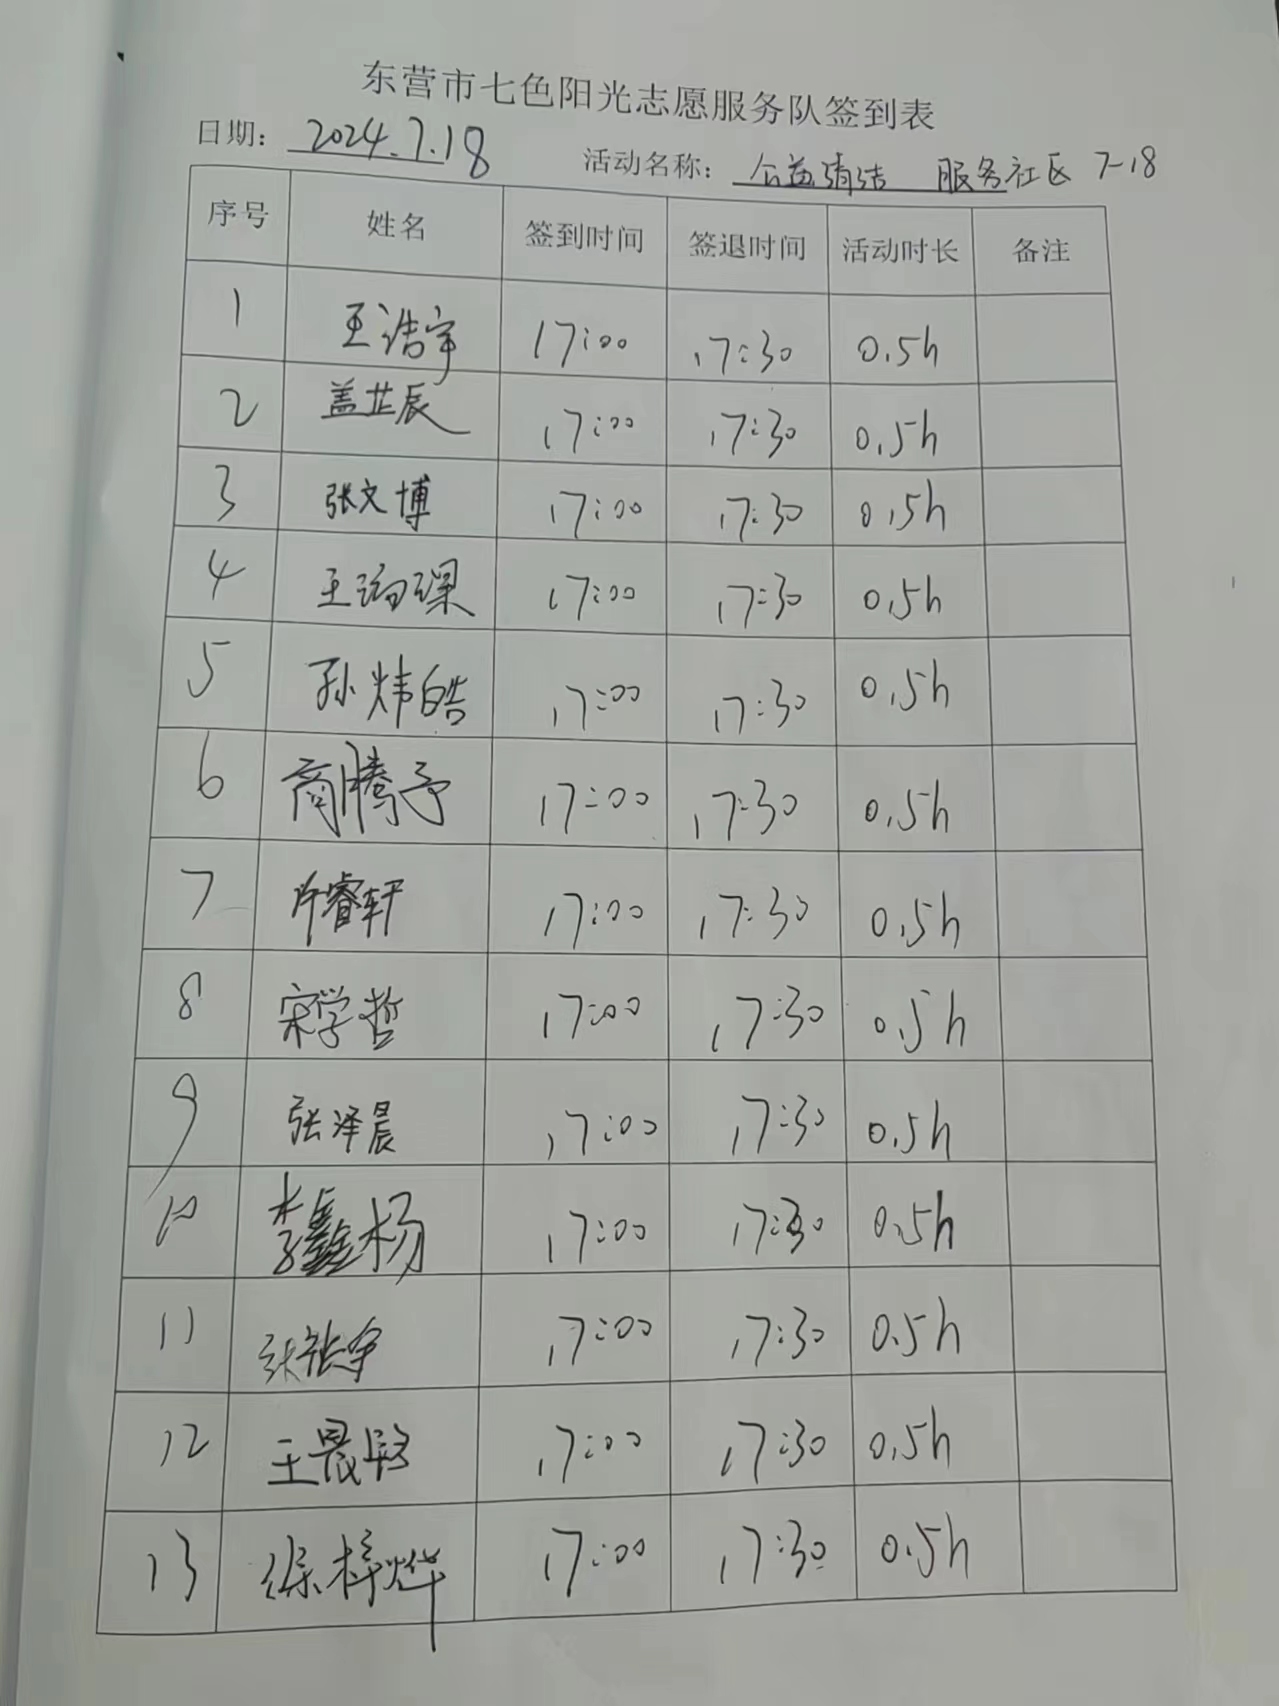 东营市七色阳光志愿服务队签到表
日期: 2024.7.18 活动名称: 公益清洁 服务社区 7-18
序号 姓名 签到时间 签退时间 活动时长 备注
1 王浩宇 17:00 17:30 0.5h
2 盖芷辰 17:00 17:30 0.5h
3 张文博 17:00 17:30 0.5h
4 王 17:00 17:30 0.5h
5 孙炜皓 17:00 17:30 0.5h
6 商腾予 17:00 17:30 0.5h
7 许睿轩 17:00 17:30 0.5h
8 宋学哲 17:00 17:30 0.5h
9 张泽晨 17:00 17:30 0.5h
10 李鑫杨 17:00 17:30 0.5h
11 张 17:00 17:30 0.5h
12 王晨 17:00 17:30 0.5h
13 徐梓烨 17:00 17:30 0.5h